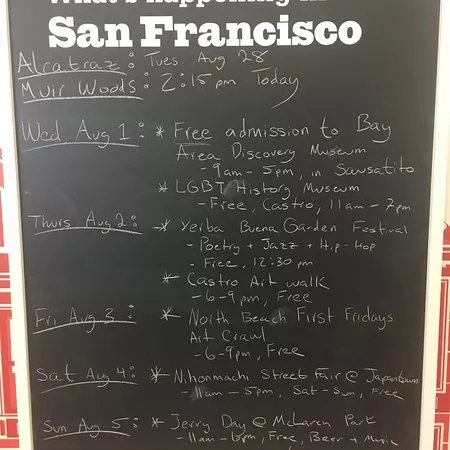 What's happening in
San Francisco
Alcatraz: Tues Aug 28
Muir Woods: 2:15pm Today
Wed Aug 1: * Free admission to Bay
Area Discovery Museum
- 9am - 5pm, in Sausatito
* LGBT History Museum
- Free, Castro, 11am - 7pm
Thurs Aug 2: * Yerba Buena Garden Festival
- Poetry + Jazz + Hip-Hop
- Free, 12:30 pm
* Castro Art walk
- 6-9pm, Free
Fri Aug 3: * North Beach First Fridays
Art Crawl
- 6-9pm, Free
Sat Aug 4: * Nihonmachi Street Fair @ Japantown
11am - 5pm, Sat-Sun, Free
Sun Aug 5: * Jerry Day @ McLaren Park
- 11am - 6pm, Free, Beer + Music